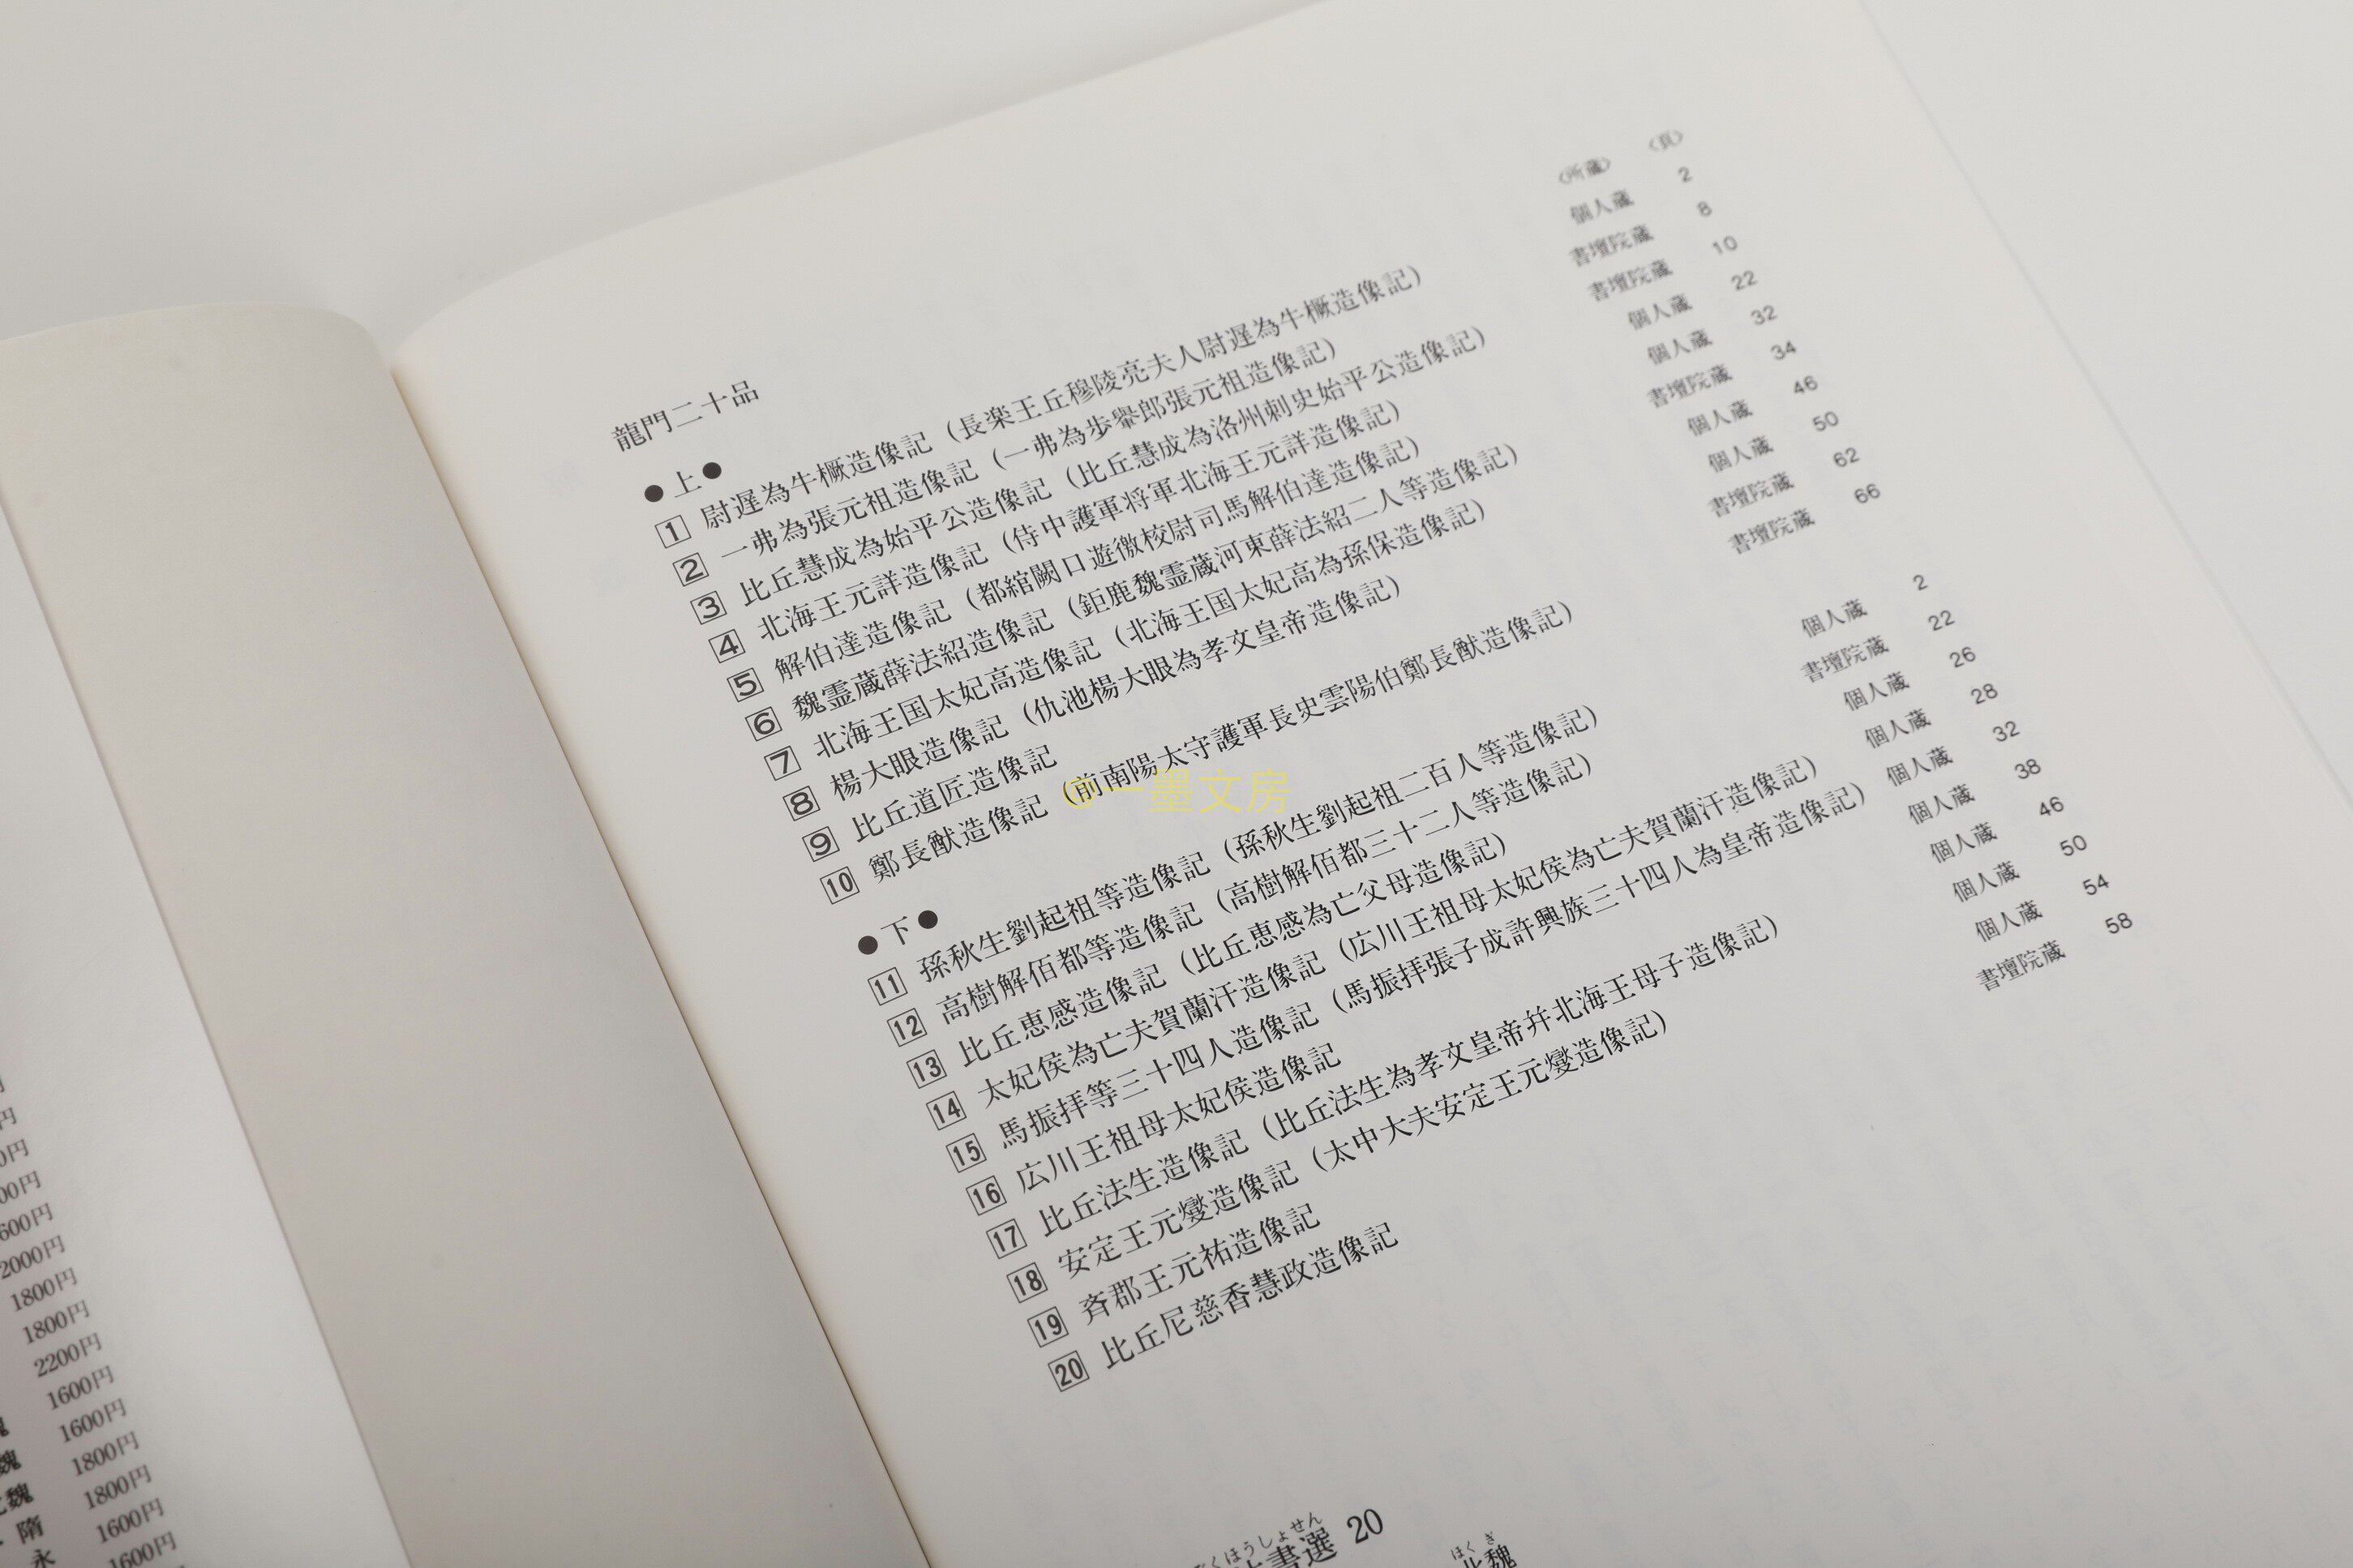 龍門二十品
〈所蔵〉 〈頁〉
●上●
1 尉遅為牛橛造像記（長楽王丘穆陵亮夫人尉遅為牛橛造像記） 個人蔵 2
2 一弗為張元祖造像記（一弗為歩轝郎張元祖造像記） 書壇院蔵 8
3 比丘慧成為始平公造像記（比丘慧成為洛州刺史始平公造像記） 書壇院蔵 10
4 北海王元詳造像記（侍中護軍将軍北海王元詳造像記） 個人蔵 22
5 解伯達造像記（都綰闕口遊徼校尉司馬解伯達造像記） 個人蔵 32
6 魏霊蔵薛法紹造像記（鉅鹿魏霊蔵河東薛法紹二人等造像記） 書壇院蔵 34
7 北海王国太妃高造像記（北海王国太妃高為孫保造像記） 個人蔵 46
8 楊大眼造像記（仇池楊大眼為孝文皇帝造像記） 個人蔵 50
9 比丘道匠造像記 書壇院蔵 62
10 鄭長猷造像記（前南陽太守護軍長史雲陽伯鄭長猷造像記） 書壇院蔵 66
●下●
11 孫秋生劉起祖等造像記（孫秋生劉起祖二百人等造像記） 個人蔵 2
12 高樹解佰都等造像記（高樹解佰都三十二人等造像記） 書壇院蔵 22
13 比丘恵感造像記（比丘恵感為亡父母造像記） 個人蔵 26
14 太妃侯為亡夫賀蘭汗造像記（広川王祖母太妃侯為亡夫賀蘭汗造像記） 個人蔵 28
15 馬振拝等三十四人造像記（馬振拝張子成許興族三十四人為皇帝造像記） 個人蔵 32
16 広川王祖母太妃侯造像記 個人蔵 38
17 比丘法生造像記（比丘法生為孝文皇帝并北海王母子造像記） 個人蔵 46
18 安定王元燮造像記（太中大夫安定王元燮造像記） 個人蔵 50
19 斉郡王元祐造像記 個人蔵 54
20 比丘尼慈香慧政造像記 書壇院蔵 58
@一墨文房
くほうしょせん
書選 20
ほくぎ
北魏
00円
600円
2000円
1800円
1800円
2200円
1600円
1600円
魏 1800円
魏 1800円
隋 1600円
永 1600円